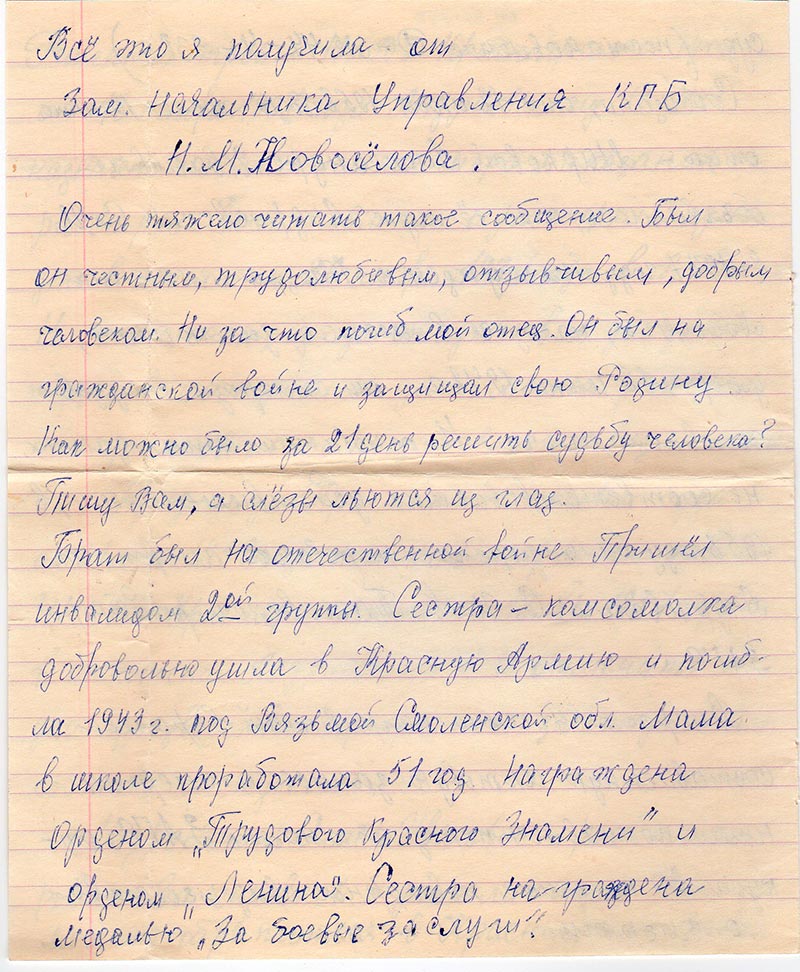 Всё это я получила от
Зам. Начальника Управления КГБ
Н.М.Новосёлова.
Очень тяжело читать такое сообщение. Был
он честным, трудолюбивым, отзывчивым, добрым
человеком. Ни за что погиб мой отец. Он был на
гражданской войне и защищал свою Родину.
Как можно было за 21 день решить судьбу человека?
Пишу Вам, а слёзы льются из глаз.
Брат был на отечественной войне. Пришёл
инвалидом 2ой группы. Сестра – комсомолка
добровольно ушла в Красную Армию и погиб-
ла 1943 г. под Вязьмой Смоленской обл. Мама
в школе проработала 51 год. Награждена
Орденом „Трудового Красного Знамени" и
орденом „Ленина". Сестра награждена
медалью „За боевые заслуги".